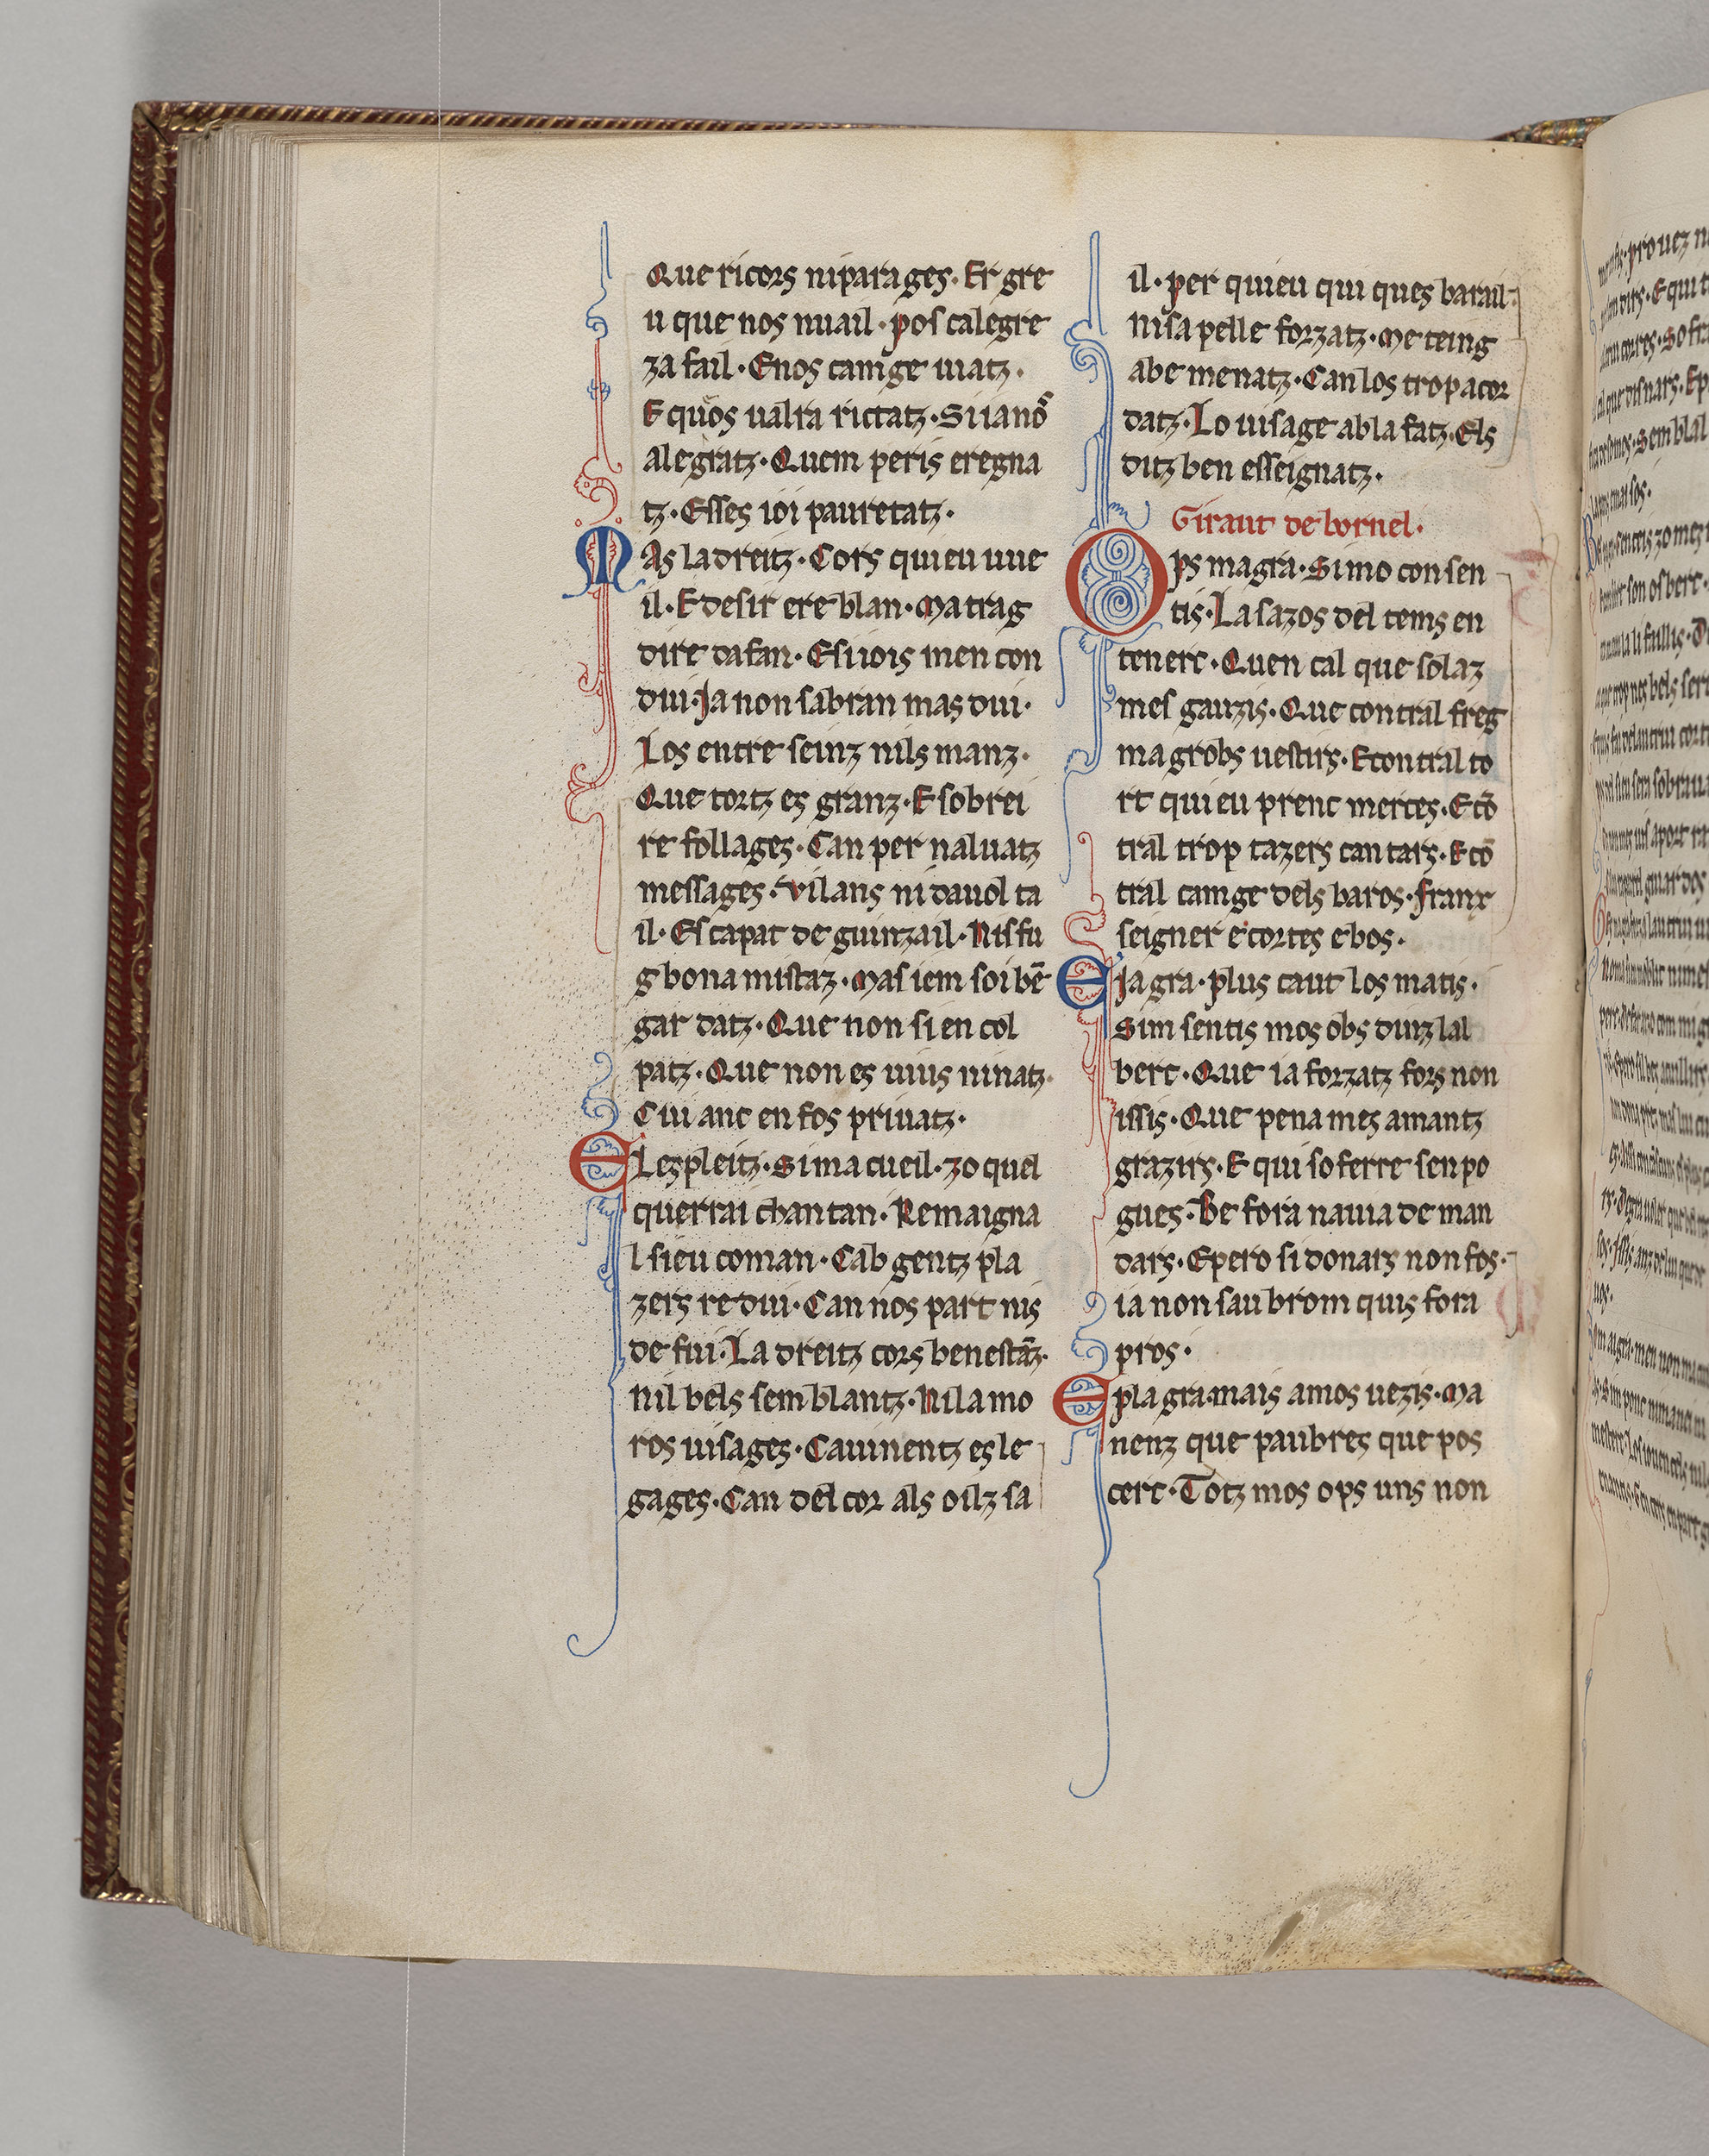 Que ricors ni parages. Er gre
u que nos nuail. pos calegre
za fail. E nos camge uiatz.
E quos ualra rictatz. Si ia nō
alegratz. Quem peris e regna
tz. Esses ioi pauretatz.
MAs la dreitz. Cors qui eu uue
il. E desir e re blan. Ma trag
dire dafan. E si iois men con
dui. Ja non sabran mas dui.
Los entre seinz nils manz.
Que tortz es granz. E sobrei
re follages. Can per naluatz
messages. Vilans ni dauol ta
il. Es capat de guinzail. Nis fu
g bona mistaz. Mas iem soi bē
gar datz. Que non si en col
patz. Que non es uius ni natz.
Cui anc en fos priuatz.
ELez pleitz. Si ma cueil. zo quel
querrai chantan. Remaigna
l sieu coman. Cab gentz pla
zers re dui. Can nos part nis
de fui. La dreitz cors benestāz.
nil bels semblantz. Nil amo
ros uisages. Cauinentz es le
gages. Can del cor als oilz sa
il. per quieu qui ques barail.
nisa pelle forzatz. Me teing
abe menatz. Can los trop acor
datz. Lo uisage ab la fatz. Els
ditz ben esseignatz.
Giraut de bornel.
OPs magra. Si mo con sen
tis. La sazos del tems en
tenerc. Quen cal que solaz
mes gauzis. Que contral freg
magrobs uestirs. E contral to
rt qui eu prenc merces. E cō
tral trop tazers cantars. E cō
tral camge dels baros. franx
seigner e cortes e bos.
E ja gra. plus caut los matis.
Sim sentis mos obs duiz lal
berc. Que ia forzatz fors non
issis. Que pena mes amantz
grazirs. E qui soferre sen po
gues. Be fora naiua de man
dars. Epero si donars non fos.
ia non sau brom quis fora
pros.
E pla gra. mais amos uezis. Ma
nenz que paubres que pos
cerc. Totz mos ops uns non